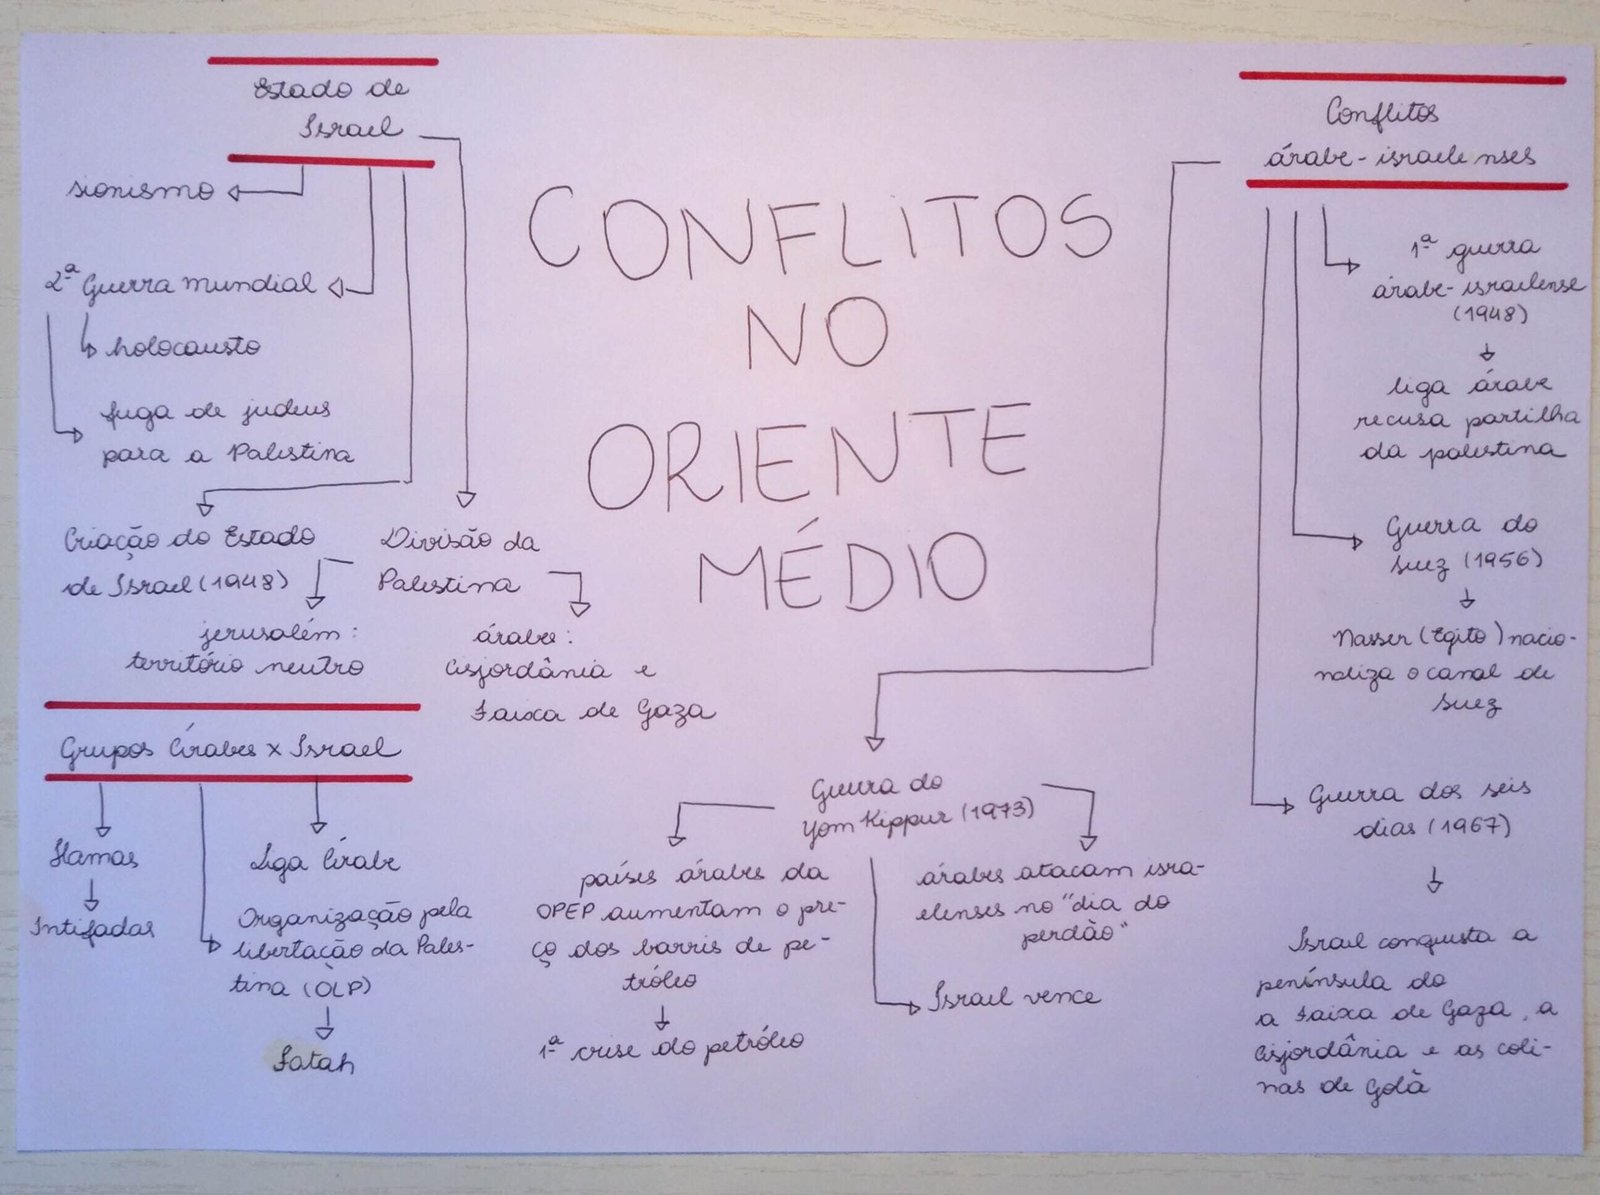 CONFLITOS
NO
ORIENTE
MÉDIO
Estado de
Israel
sionismo
2ª Guerra mundial
holocausto
fuga de judeus
para a Palestina
Criação do Estado
de Israel (1948)
Divisão da
Palestina
jerusalém:
território neutro
árabe:
Cisjordânia e
Faixa de Gaza
Grupos Árabes x Israel
Hamas
Intifadas
Liga Árabe
Organização pela
libertação da Pales-
tina (OLP)
Fatah
Conflitos
árabe-israelenses
1ª guerra
árabe-israelense
(1948)
liga árabe
recusa partilha
da palestina
Guerra do
Suez (1956)
Nasser (Egito) nacio-
naliza o canal de
Suez
Guerra dos seis
dias (1967)
Israel conquista a
península do
a Faixa de Gaza, a
Cisjordânia e as coli-
nas de Golã
Guerra do
Yom Kippur (1973)
países árabes da
OPEP aumentam o pre-
ço dos barris de pe-
tróleo
1ª crise do petróleo
árabes atacam isra-
elenses no "dia do
perdão"
Israel vence